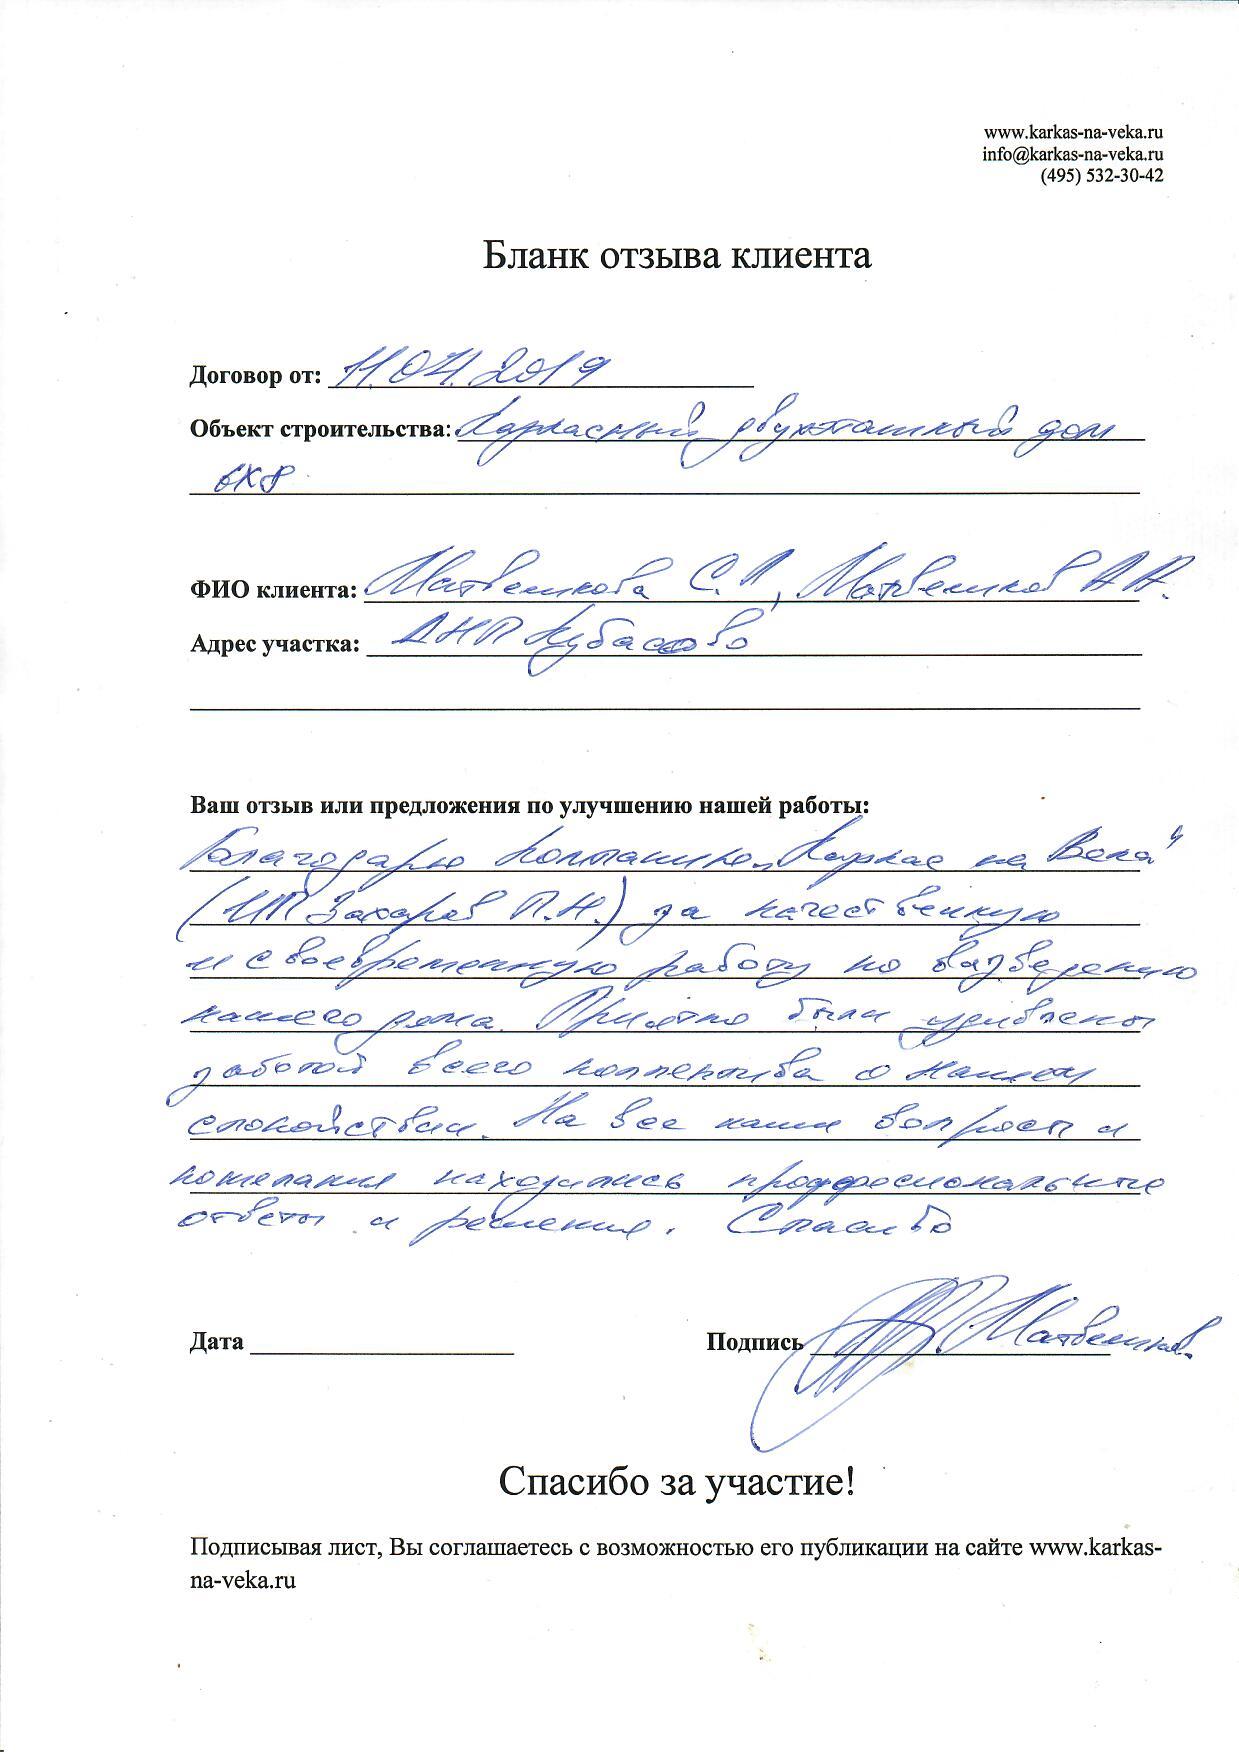 www.karkas-na-veka.ru
info@karkas-na-veka.ru
(495) 532-30-42
Бланк отзыва клиента
Договор от: 11.04.2019
Объект строительства: Каркасный двухэтажный дом
6х8
ФИО клиента: Матвешкова С. Л, Матвешков А А.
Адрес участка: ДНП Кубасово
Ваш отзыв или предложения по улучшению нашей работы:
Благодарю компанию „Каркас на Века"
(ИП Захаров П.Н.) за качественную
и своевременную работу по возведению
нашего дома. Приятно были удивлены
заботой всего коллектива о нашем
спокойствии. На все наши вопросы и
пожелания находились профессиональные
ответы и решения. Спасибо
Дата Подпись Матвешков.
Спасибо за участие!
Подписывая лист, Вы соглашаетесь с возможностью его публикации на сайте www.karkas-
na-veka.ru